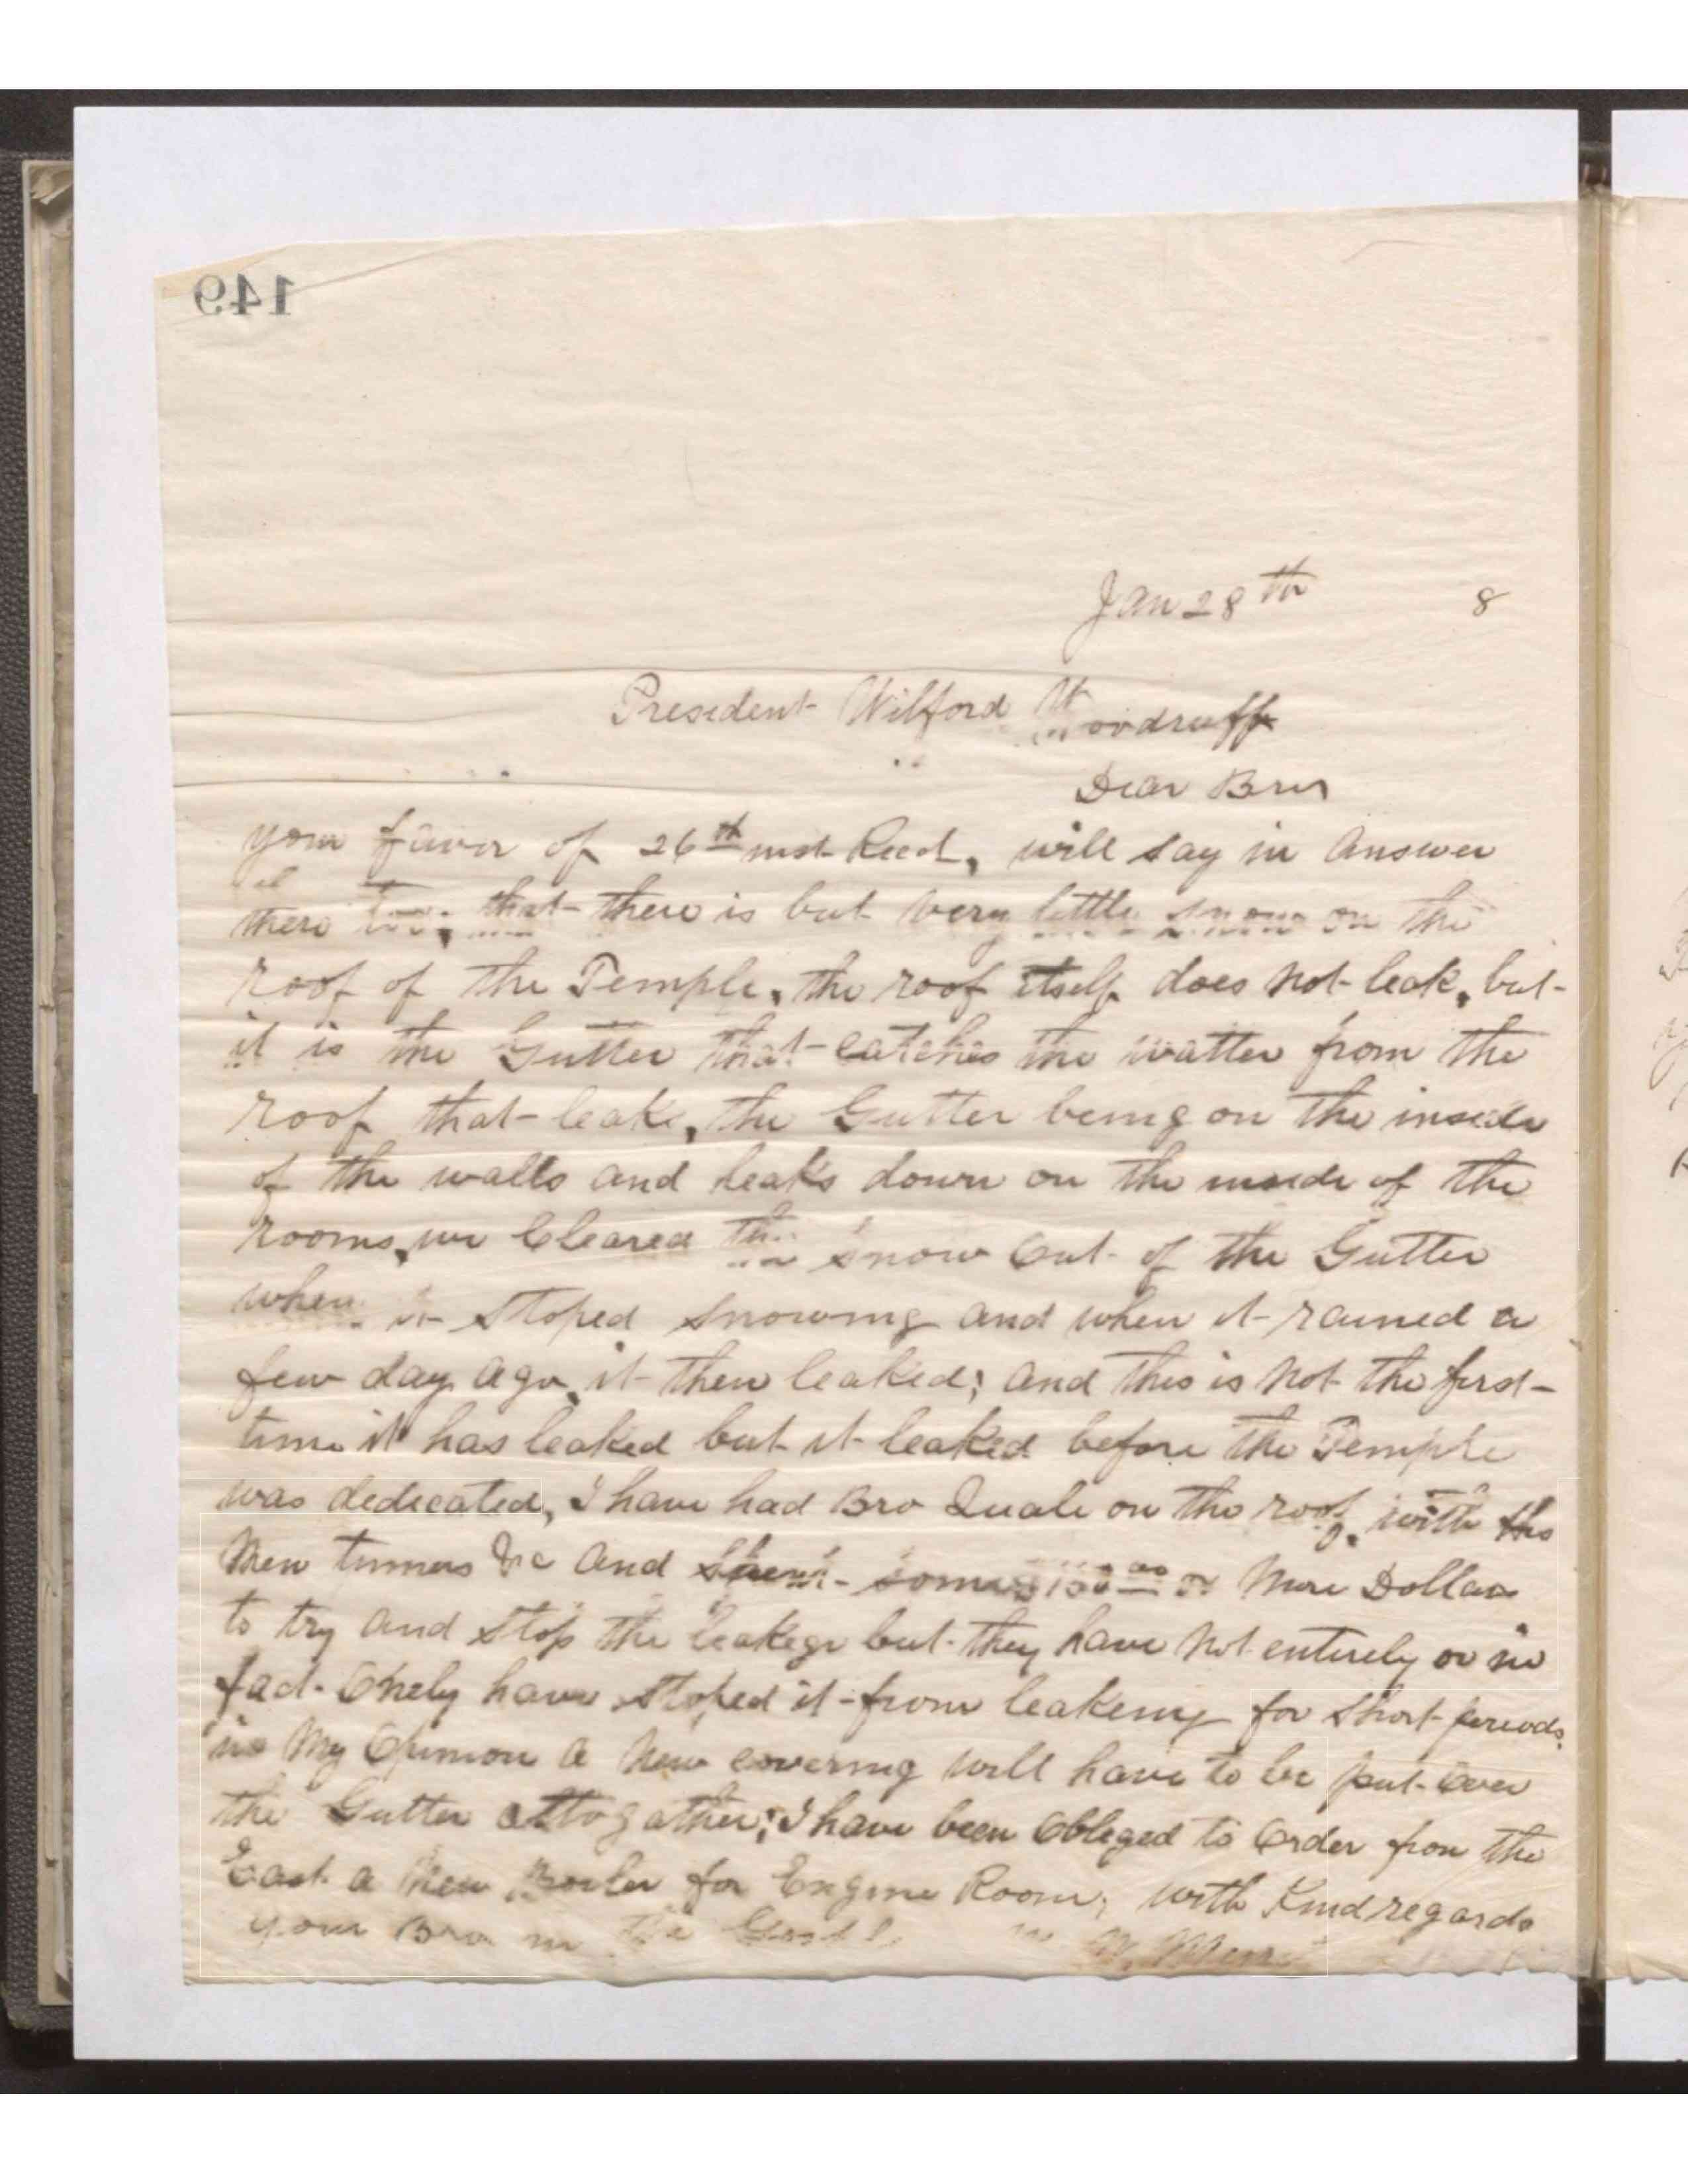 149
Jan 28th 8
President Wilford Woodruff
Dear Bror
your favor of 26th inst Recd, will say in answer
there too, that there is but very little snow on the
roof of the Temple, the roof itself does not leak, but
it is the Gutter that catches the watter from the
roof that leaks, the Gutter being on the inside
of the walls and leaks down on the inside of the
rooms, we Cleared the snow out of the Gutter
when it stoped snowing and when it rained a
few day ago, it then leaked; and this is not the first
time it has leaked but it leaked before the Temple
was dedicated, I have had Bro Quale on the roof, with his
Men tinners &c and spent some $150.00 or More Dollars
to try and stop the leakege but they have not entirely or in
fact Onely have stoped it from leakeing for short periods,
in My Opinion a New covering will have to be put over
the Gutter alltogather; I have been Obleged to Order from the
East a New Boiler for Engine Room, with Kind regards
your Bro in the Gospel, M W. Merrill